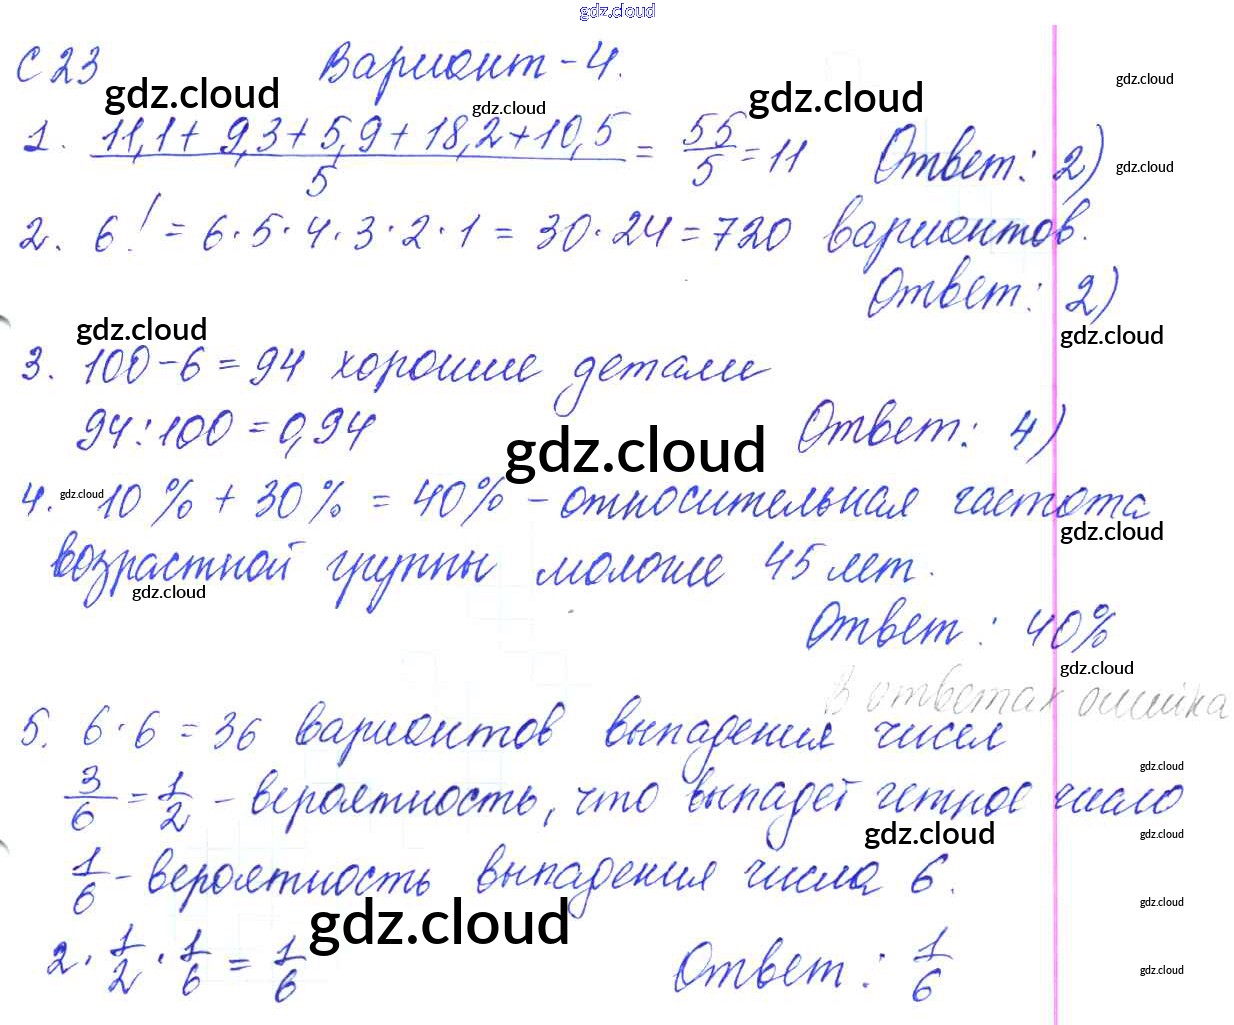 gdz.cloud
С 23 Вариант - 4.
gdz.cloud gdz.cloud gdz.cloud gdz.cloud
1. (11,1 + 9,3 + 5,9 + 18,2 + 10,5)/5 = 55/5 = 11 Ответ: 2)
gdz.cloud
2. 6! = 6 · 5 · 4 · 3 · 2 · 1 = 30 · 24 = 720 вариантов.
Ответ: 2)
gdz.cloud gdz.cloud
3. 100 - 6 = 94 хорошие детали
94 : 100 = 0,94 Ответ: 4)
gdz.cloud
4. 10 % + 30 % = 40 % - относительная частота
gdz.cloud gdz.cloud
возрастной группы моложе 45 лет.
gdz.cloud
Ответ: 40%
gdz.cloud
В ответах ошибка
5. 6 · 6 = 36 вариантов выпадения чисел
gdz.cloud
3/6 = 1/2 - вероятность, что выпадет четное число
gdz.cloud gdz.cloud
1/6 - вероятность выпадения числа 6.
gdz.cloud gdz.cloud
2 · 1/2 · 1/6 = 1/6 Ответ: 1/6
gdz.cloud